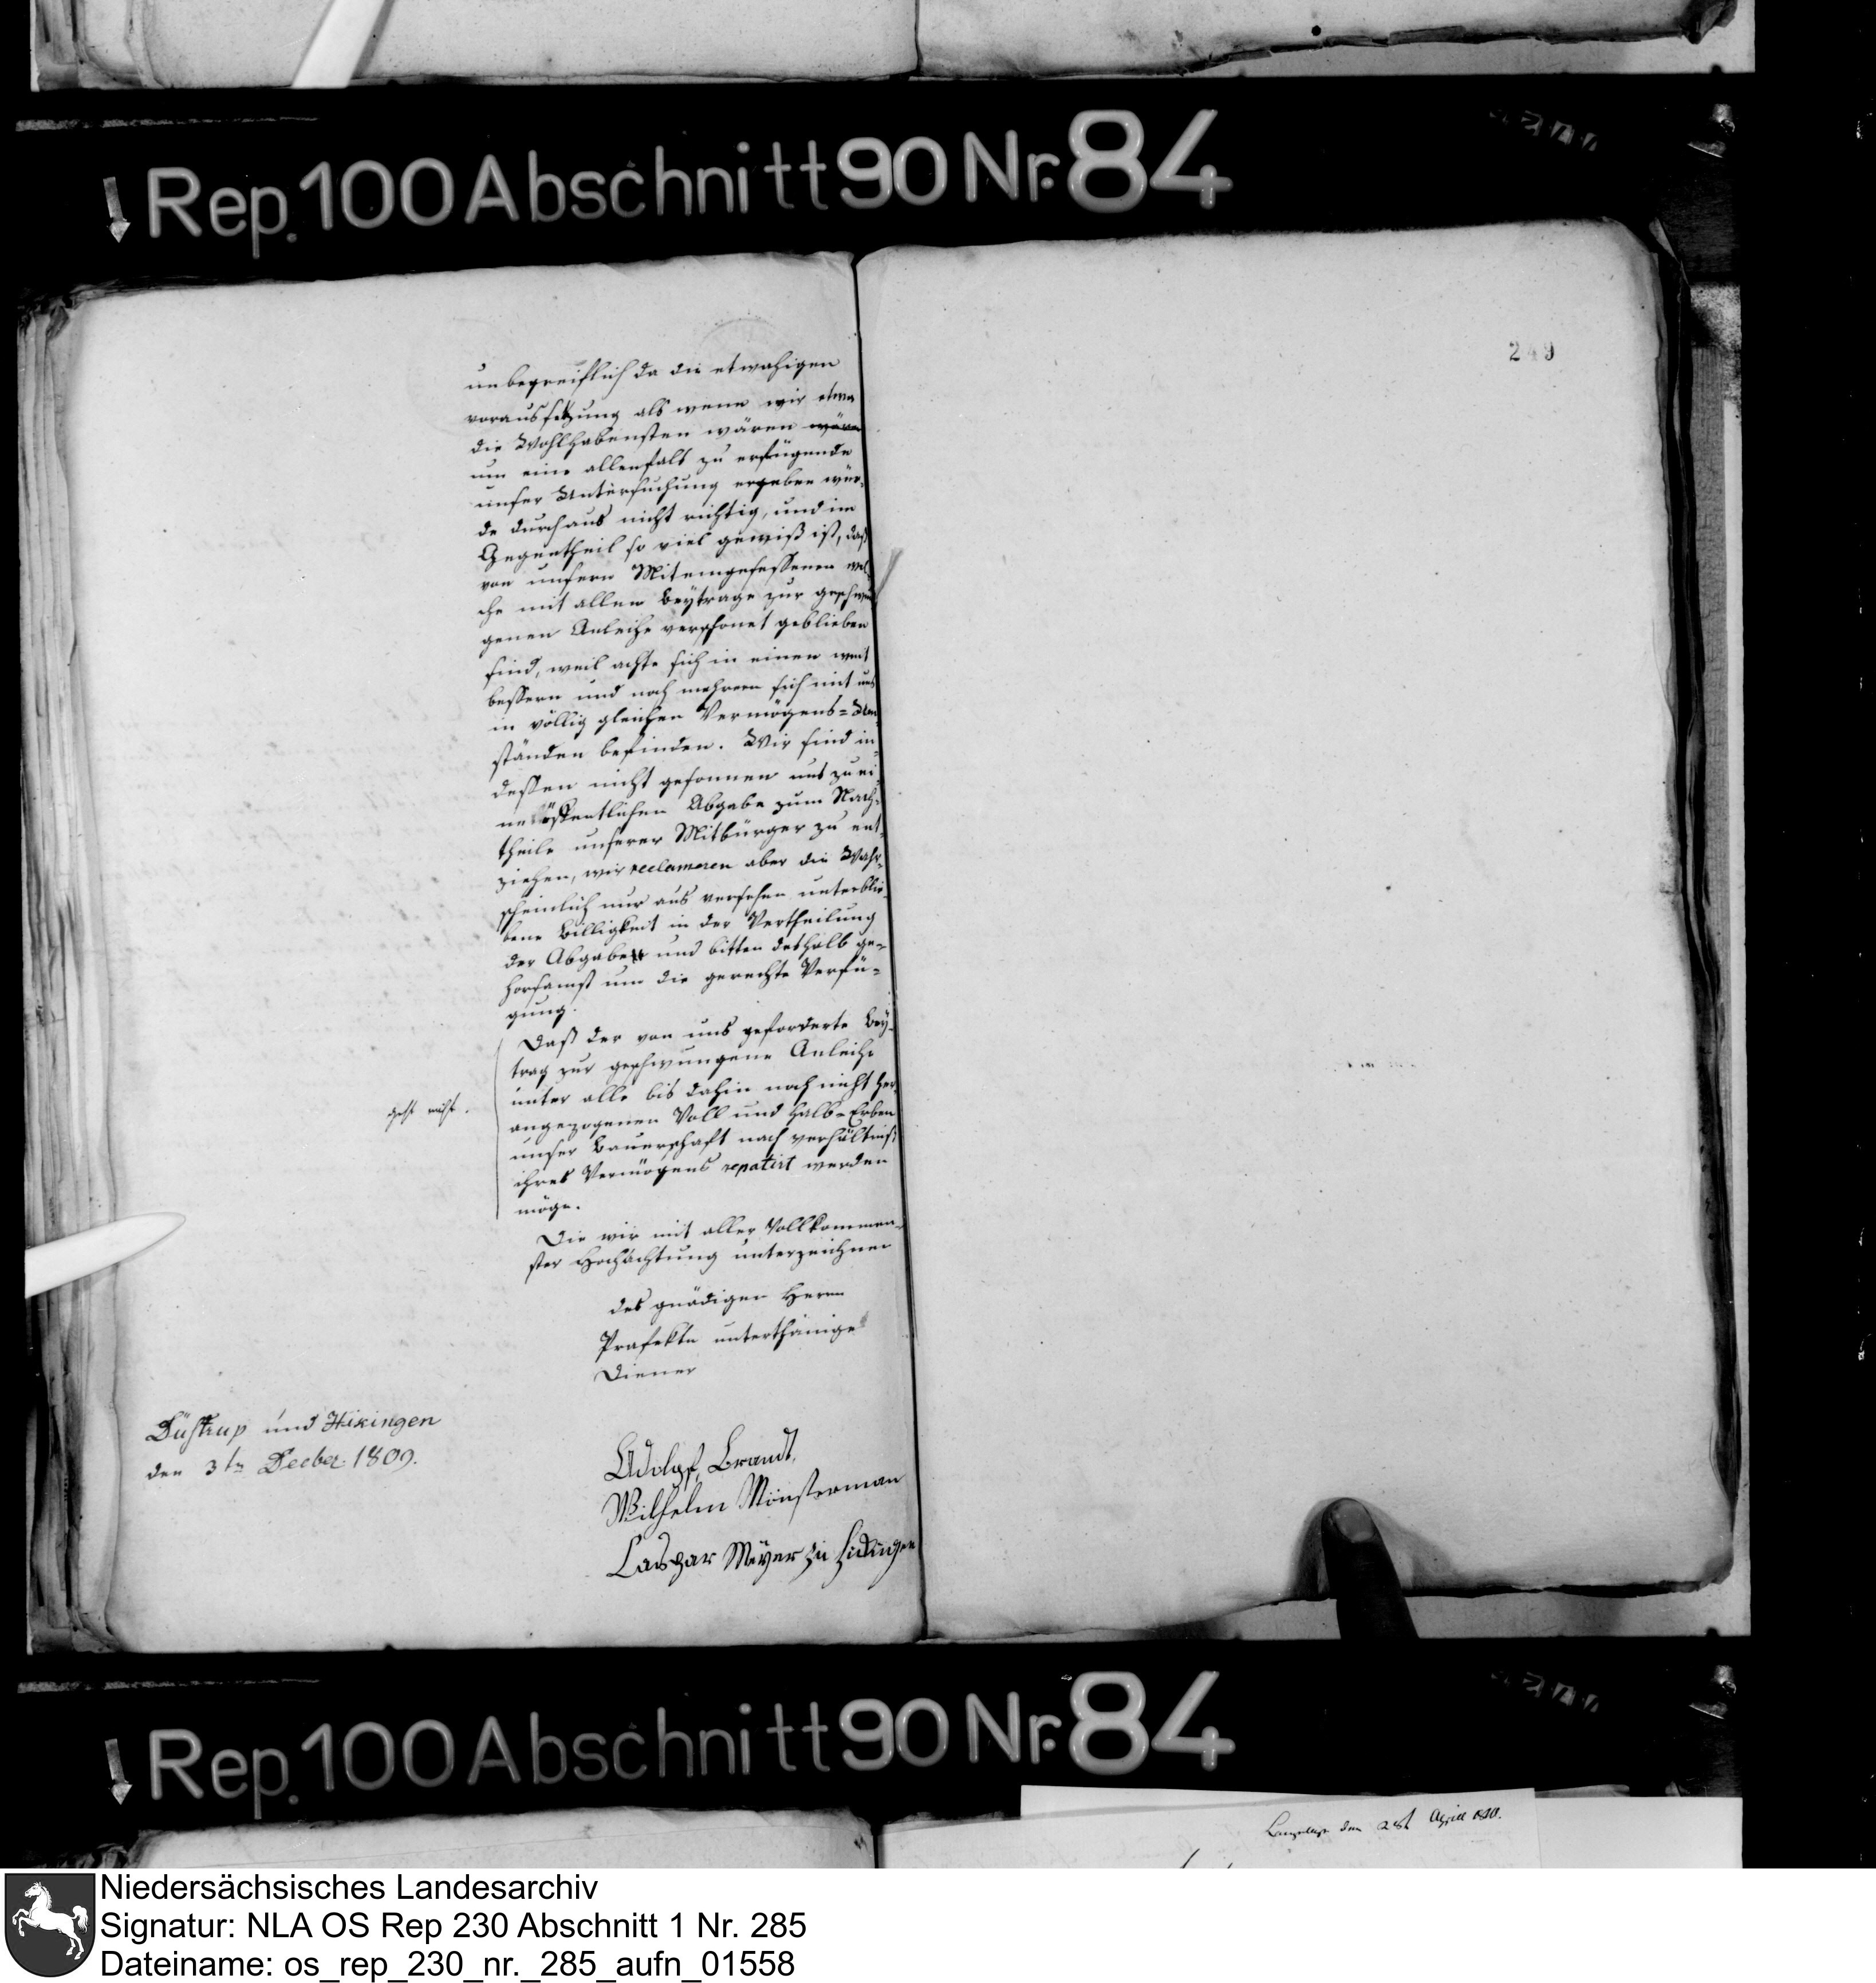 Rep. 100 Abschnitt 90 Nr. 84
249
unbegreiflich da die etwahigen
voraussetzung als wenn wir etwa
die Wohlhabensten wären wären
um eine allenfals zu erfügende
unser Untersuchung ergeben wür-
de durchaus nicht richtig, und im
Gegentheil so viel gewiß ist, daß
von unsern Miteingesessenen wel-
che mit allem Beytrage zur geschwun
genen Anleihe verschonet geblieben
sind, weil achte sich in einen weit
bessern und noch mehrern sich mit uns
in völlig gleichen Vermögens-Um-
ständen befinden. Wir sind in-
dessen nicht gesonnen uns zu ei-
ne öffentlichen Abgabe zum Nach-
theile unserer Mitbürger zu ent-
ziehen, wir reclameren aber die Wahr-
scheinlich nur aus versehen unterblie-
bene Billigkeit in der Vertheilung
der Abgaben und bitten deshalb ge-
horsamst um die gerechte Verfü-
gung.
Daß der von uns geforderte Bey-
trag zur geschwungene Anleihe
unter alle bis dahin noch nicht her
angezogenen Voll und Halb-Erben
unser Bauerschaft nach verhältniß
ihres Vermögens repatirt werden
möge.
geht nicht.
Die wir mit aller Vollkommen-
ster Hochachtung unterzeichnen
des gnädigen Herrn
Prafekte unterthänige
Diener
Düstrup und Hikingen
den 3tn Decber. 1809.
Adolph Brandt,
Wilhelm Mönsterman
Caspar Meyer zu Hickingen
Rep. 100 Abschnitt 90 Nr. 84
den 28t April 1810.
Niedersächsisches Landesarchiv
Signatur: NLA OS Rep 230 Abschnitt 1 Nr. 285
Dateiname: os_rep_230_nr._285_aufn_01558